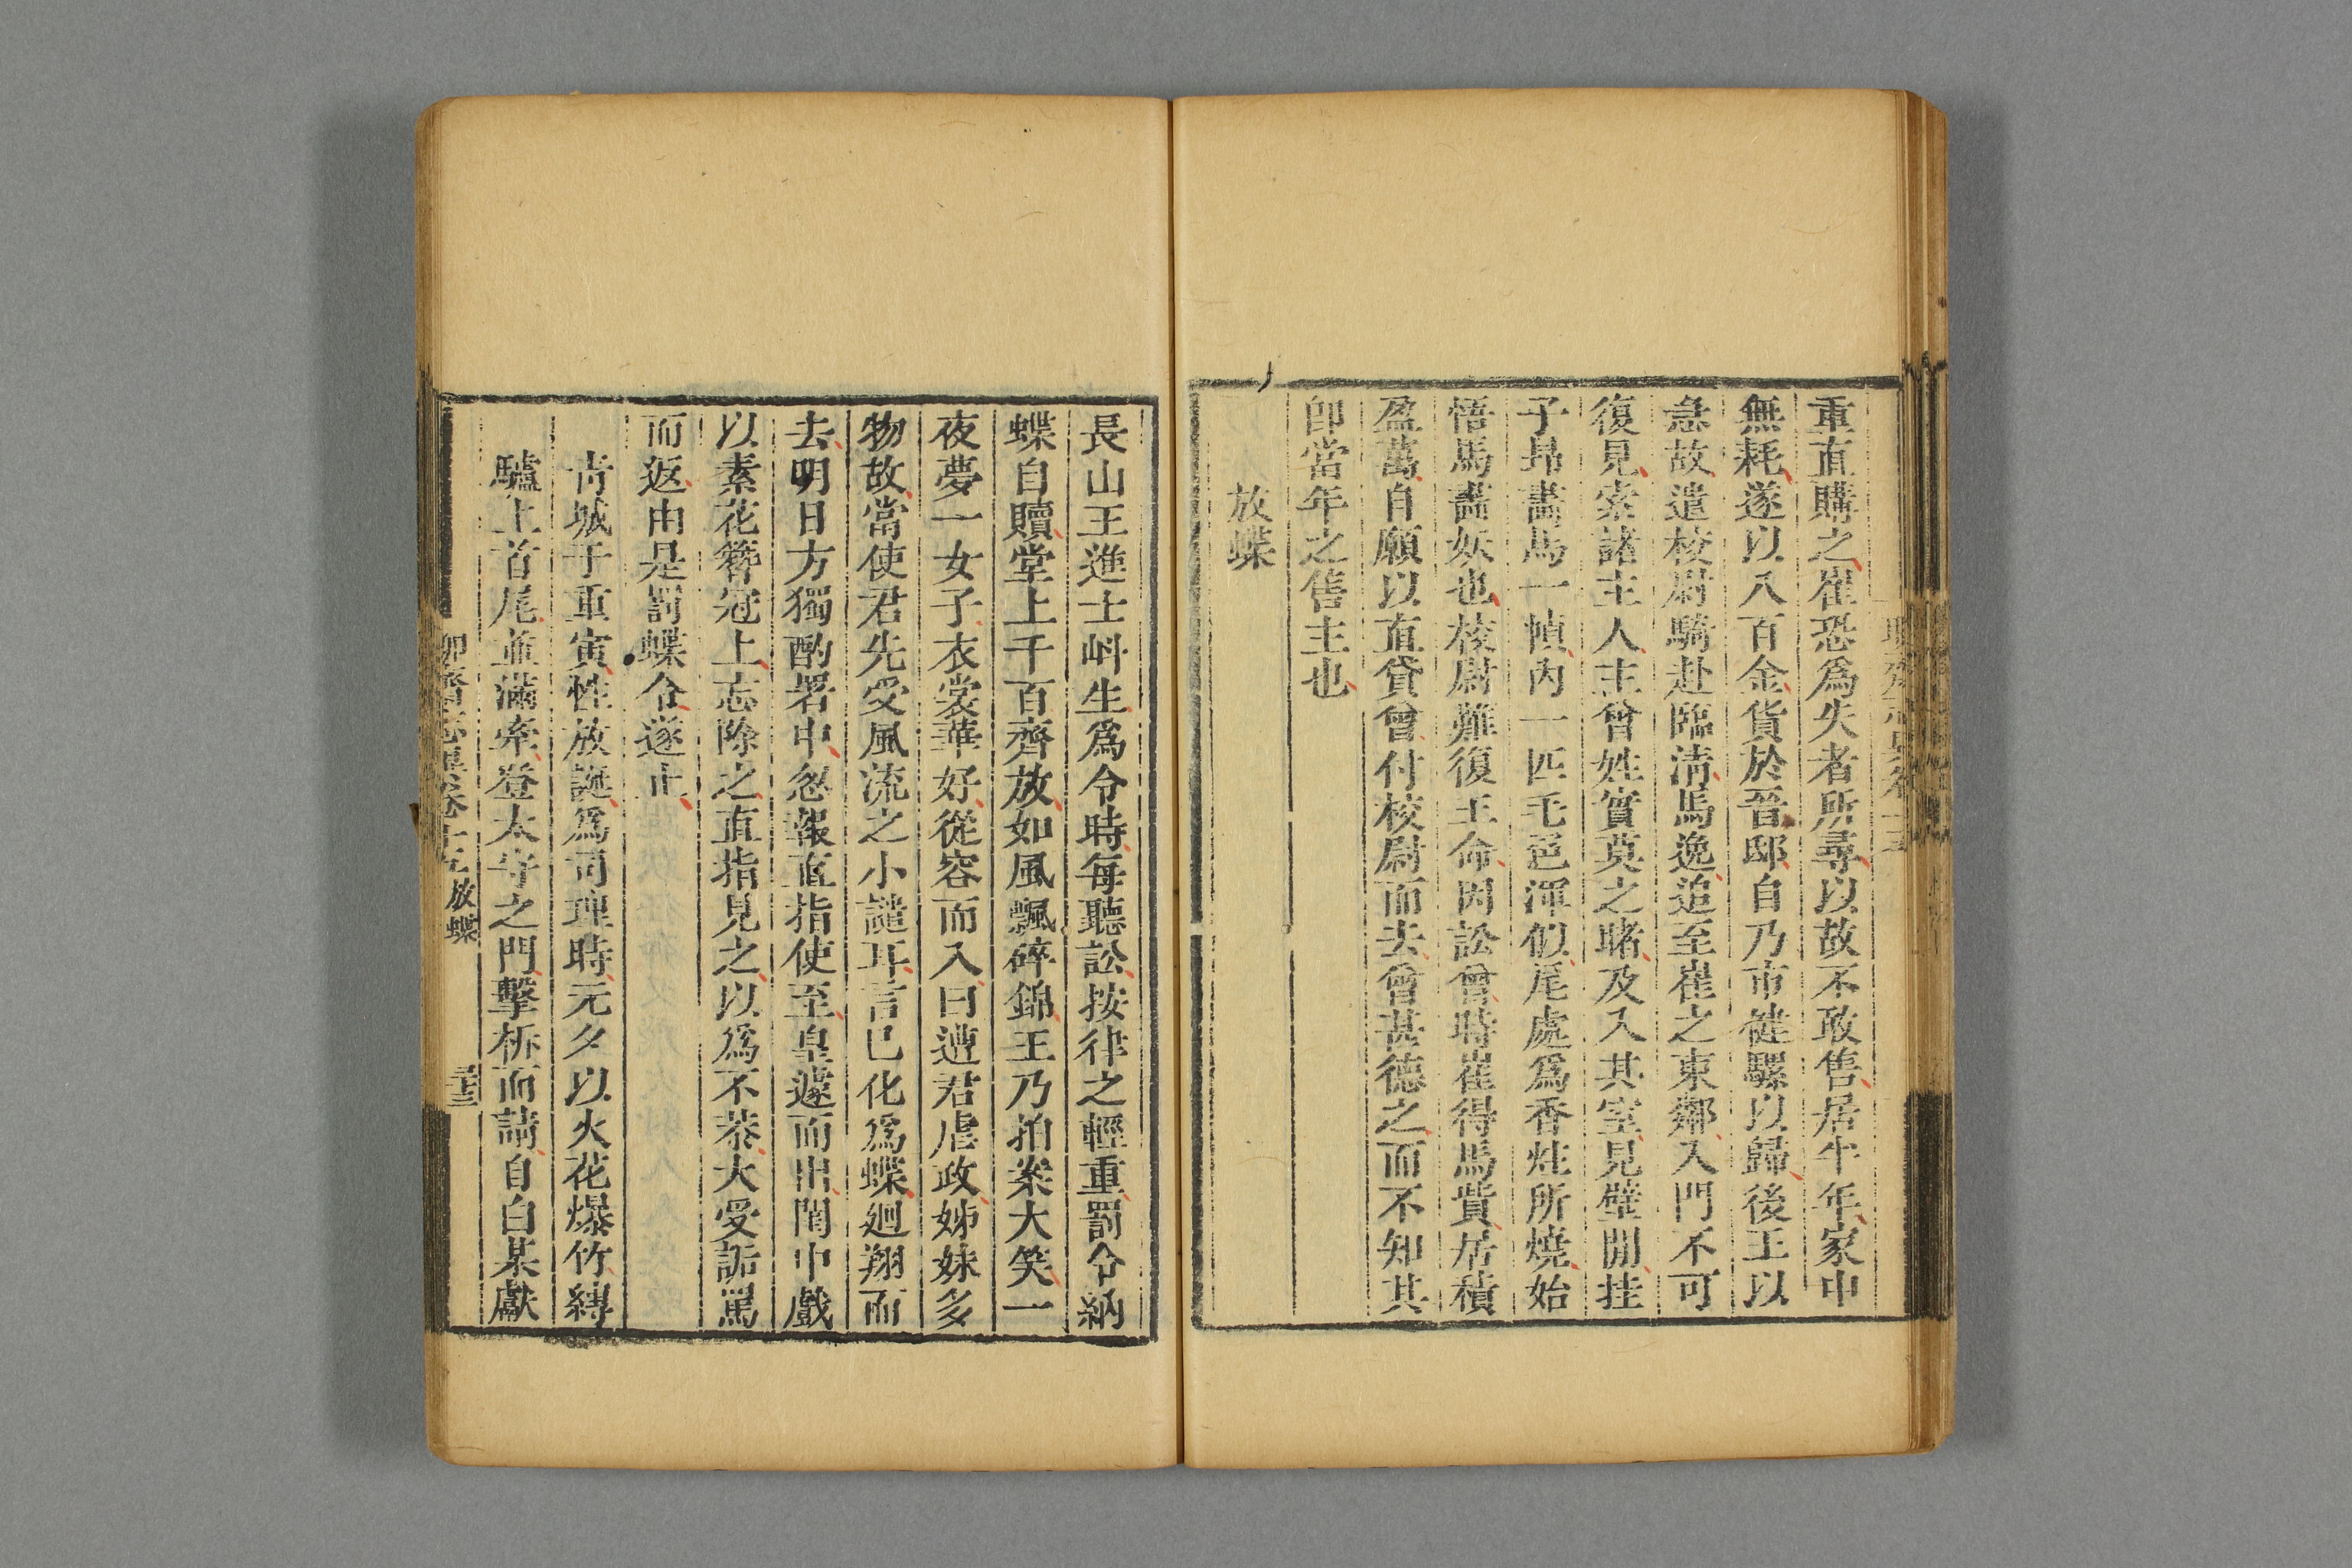 重直購之崔恐爲失者所尋以故不敢售居牛年家中
無耗遂以八百金貨於晉邸自乃市健騾以歸後王以
急故遣校尉騎赴臨淸馬逸追至崔之東鄰入門不可
復見索諸主人主曾姓實莫之睹及入其室見壁間挂
子昻畵馬一幀內一匹毛色渾似尾處爲香炷所燒始
悟馬畵妖也校尉難復王命因訟曾時崔得馬貲居積
盈萬自願以直貸曾付校尉而去曾甚德之而不知其
卽當年之售主也
放蝶
長山王進士㪷生爲令時每聽訟按律之輕重罰令納
蝶自贖堂上千百齊放如風飄碎錦王乃拍案大笑一
夜夢一女子衣裳華好從容而入曰遭君虐政姊妹多
物故當使君先受風流之小譴耳言已化爲蝶廻翔而
去明日方獨酌署中忽報直指使至皇遽而出閨中戲
以素花簪冠上忘除之直指見之以爲不恭大受詬罵
而返由是罰蝶令遂止
靑城于重寅性放誕爲司理時元夕以火花爆竹縛
驢上首尾並滿牽登太守之門擊柝而請自白某獻
放蝶